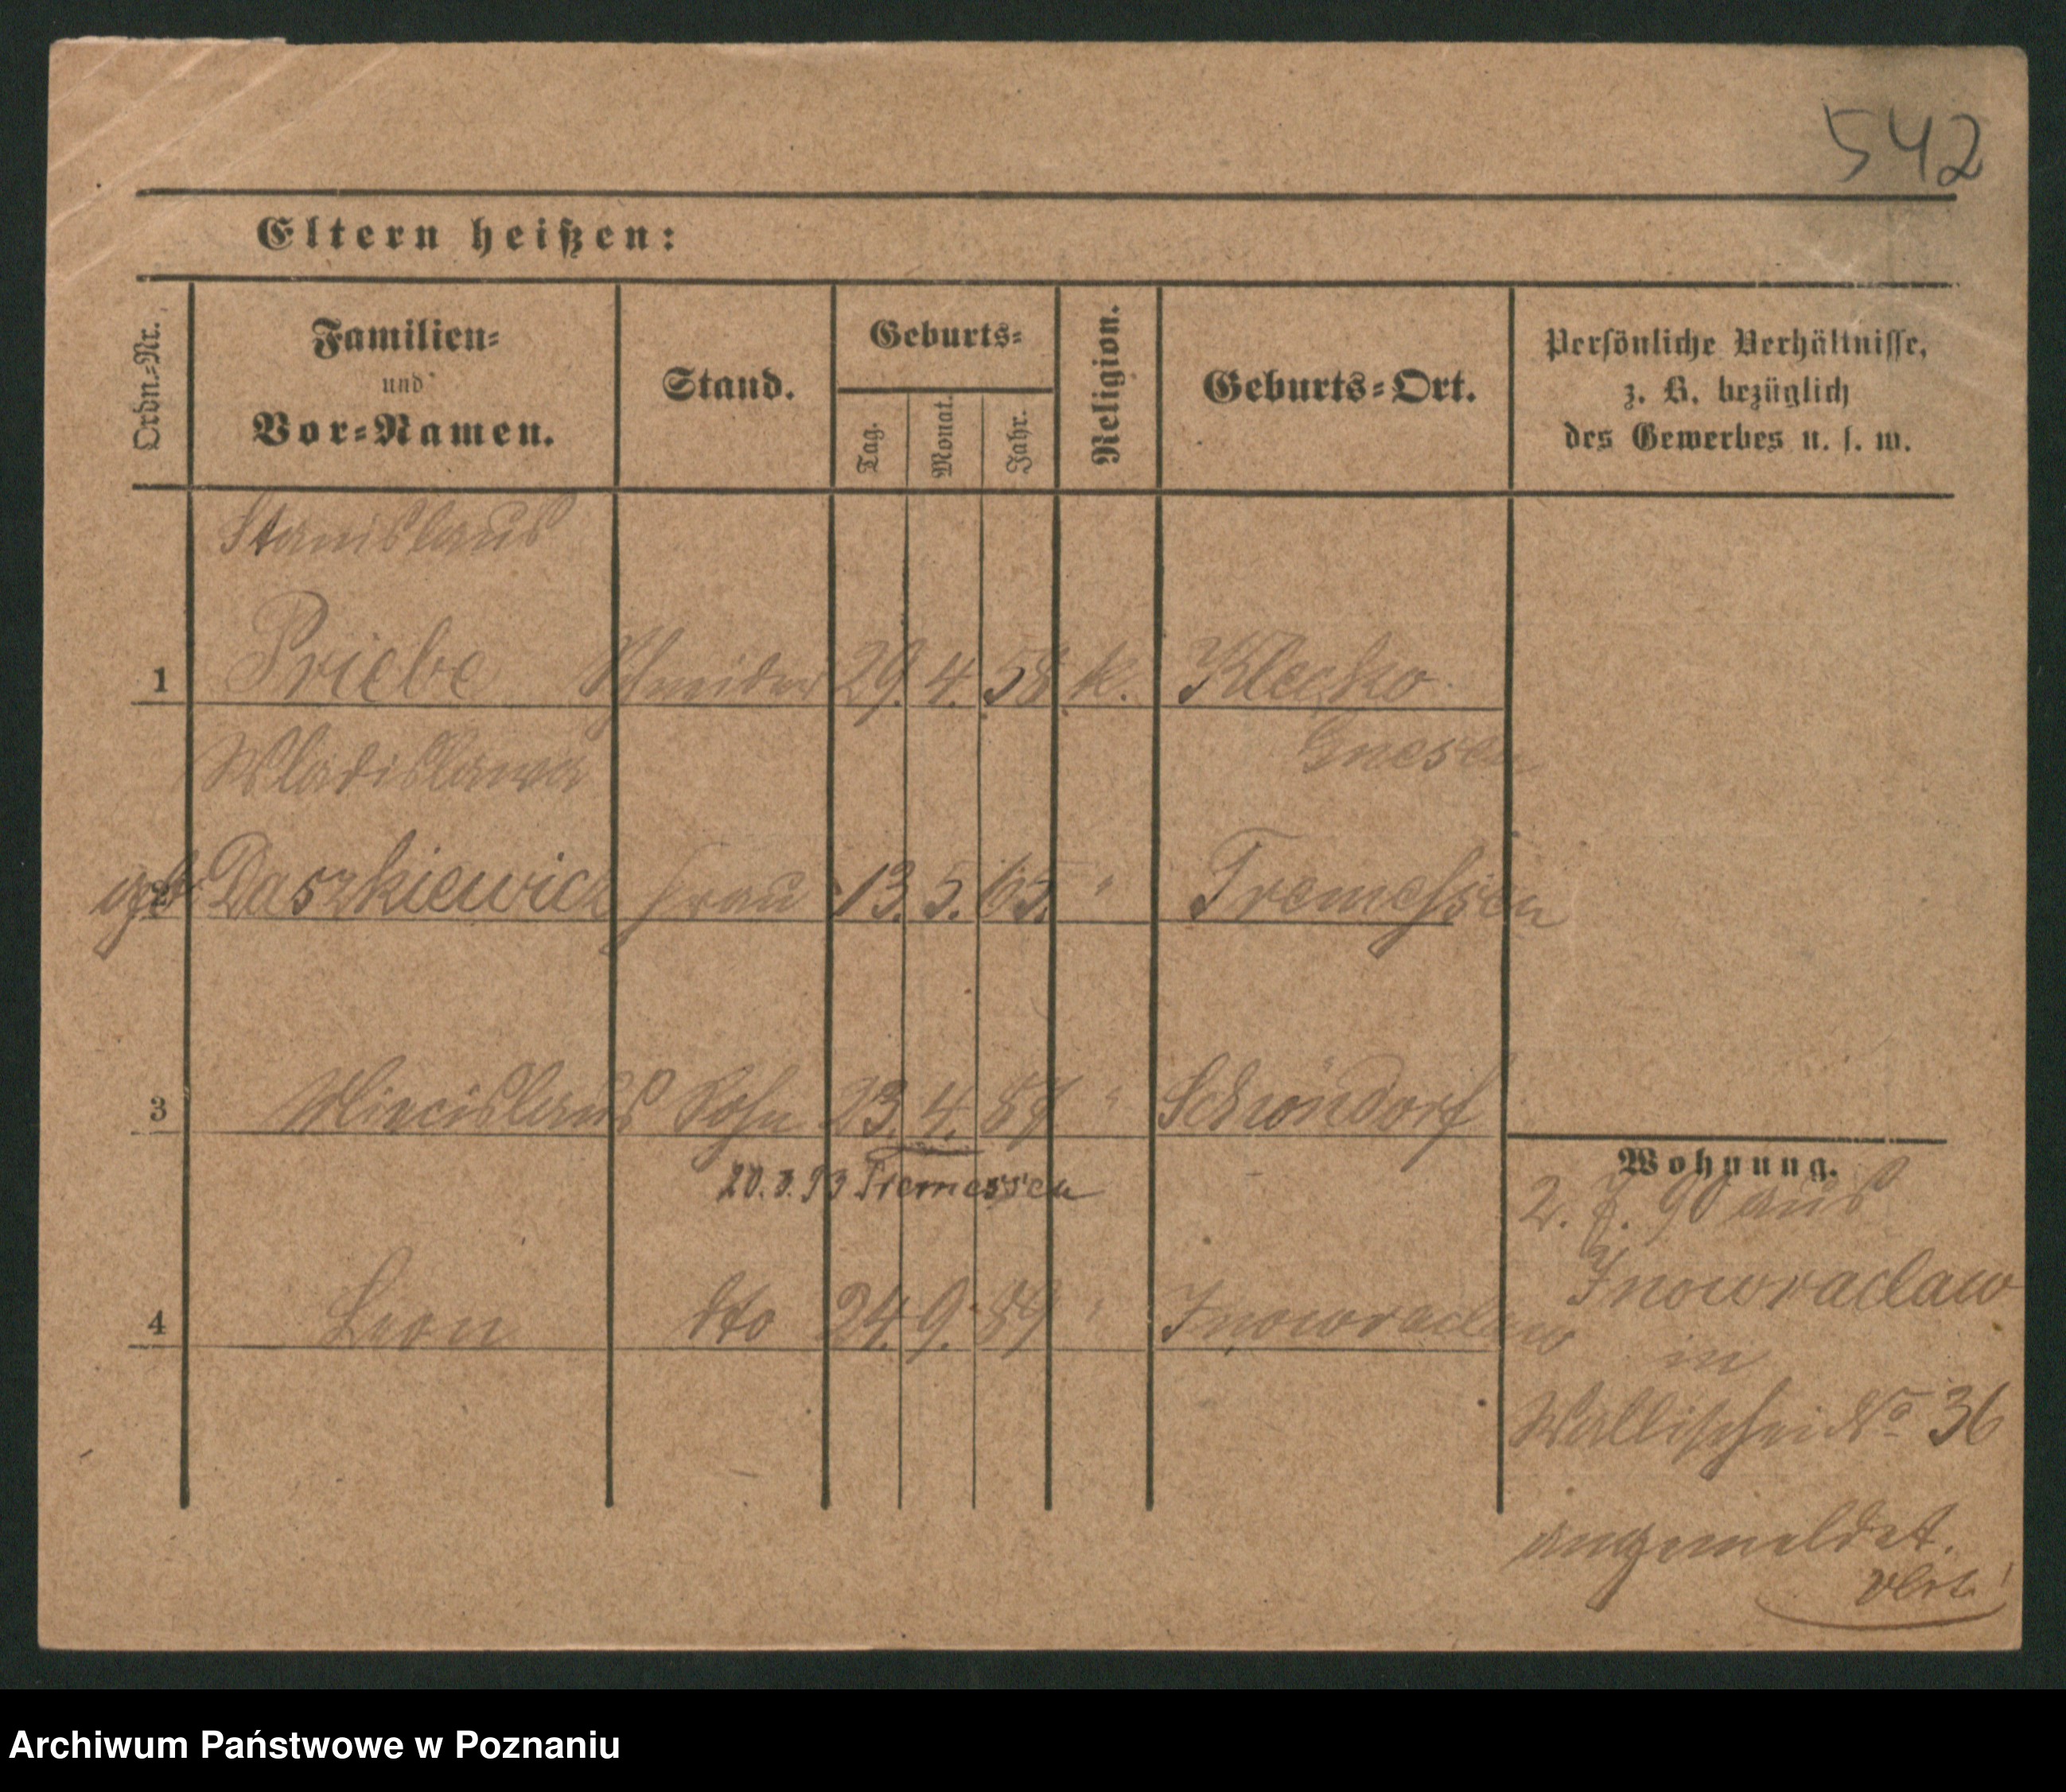 542
Eltern heißen:
Ordn.-Nr.
Familien-
und
Vor-Namen.
Stand.
Geburts-
Tag.
Monat.
Jahr.
Religion.
Geburts-Ort.
Persönliche Verhältnisse,
z. B. bezüglich
des Gewerbes u. s. w.
Stanislaus
1 Priebe Schneider 29. 4. 58 k. Klecko
Gnesen
Wladislawa
2 geb Daszkiewicz Frau 13. 5. 65. " Tremessen
3 Miecislaus Sohn 23. 4. 87 " Schröndorf
20. 3. 93 Tremessen
4 Leon dto 24. 9. 89 " Inowraclaw
Wohnung.
2. 7. 90 aus
Inowraclaw
in
Wallischei No 36
angemeldet.